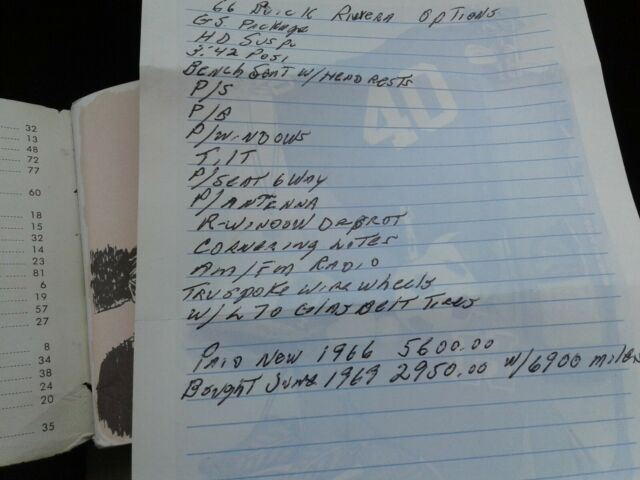 32
13
48
72
77
60
18
15
32
14
23
81
6
19
57
27
8
34
38
24
20
35
66 Buick Riviera Options
GS Package
HD Susp.
3:42 Posi
Bench Seat w/Headrests
P/S
P/B
P/Windows
Tilt
P/Seat 6 Way
P/Antenna
R-Window Defrot
Cornering Lites
Am/Fm Radio
Tru Spoke Wire Wheels
w/L70 Glas Belt Tires
Paid New 1966 5600.00
Bought June 1969 2950.00 w/6900 miles
40